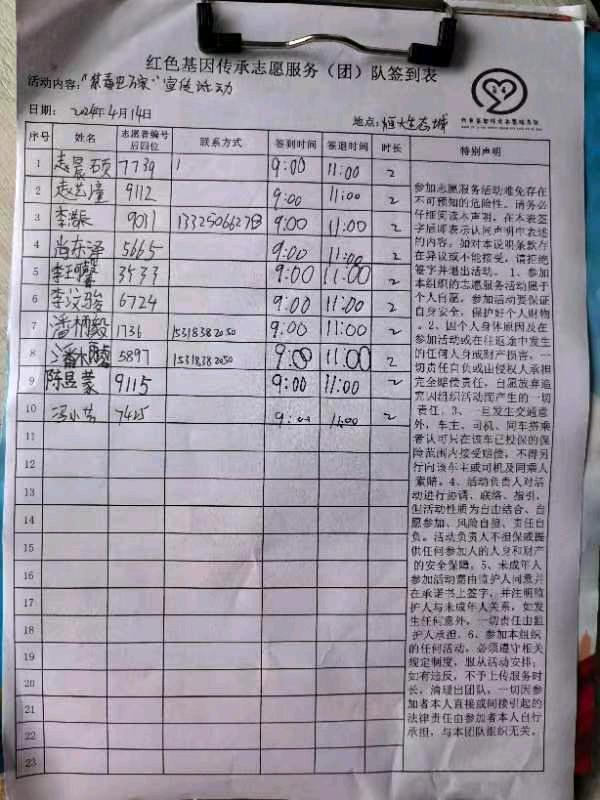 红色基因传承志愿服务（团）队签到表
活动内容：“禁毒进万家”宣传活动
日期： 2024年4月14日
地点：恒大生态城
序号 姓名 志愿者编号后四位 联系方式 签到时间 签退时间 时长 特别声明
1 7739 9:00 11:00 2
2 9112 9:00 11:00 2
3 李振 9011 9:00 11:00 2
4 尚东泽 5665 9:00 11:00 2
5 3533 9:00 11:00 2
6 李汶骏 6724 9:00 11:00 2
7 1736 15318382050 9:00 11:00 2
8 5897 15318382050 9:00 11:00 2
9 陈昱蒙 9115 9:00 11:00 2
10 冯小芳 7425 9:00 11:00 2
11
12
13
14
15
16
17
18
19
20
21
22
23
参加志愿服务活动难免存在
不可预知的危险性。请务必
仔细阅读本声明，在本表签
字后即表示认同声明中表述
的内容。如对本说明条款存
在异议或不能接受，请拒绝
签字并退出活动。 1、参加
本组织的志愿服务活动属于
个人自愿。参加活动要保证
自身安全，保护好个人财物
。2、因个人身体原因及在
参加活动或在往返途中发生
的任何人身或财产损害，一
切责任自负或由侵权人承担
完全赔偿责任，自愿放弃追
究因组织活动而产生的一切
责任。3、一旦发生交通意
外，车主、司机、同车搭乘
者认可只在该车已投保的保
险范围内接受赔偿，不得另
行向该车主或司机及同乘人
索赔。4、活动负责人对活
动进行协调、联络、指引，
但活动性质为自由结合、自
愿参加、风险自担、责任自
负。活动负责人不担保或提
供任何参加人的人身和财产
的安全保障。5、未成年人
参加活动需由监护人同意并
在承诺书上签字，并注明监
护人与未成年人关系，如发
生任何意外，一切责任由监
护人承担。6、参加本组织
的任何活动，必须遵守相关
规定制度，服从活动安排；
如有违反，不予上传服务时
长，清理出团队，一切因参
加者本人直接或间接引起的
法律责任由参加者本人自行
承担，与本团队组织无关。